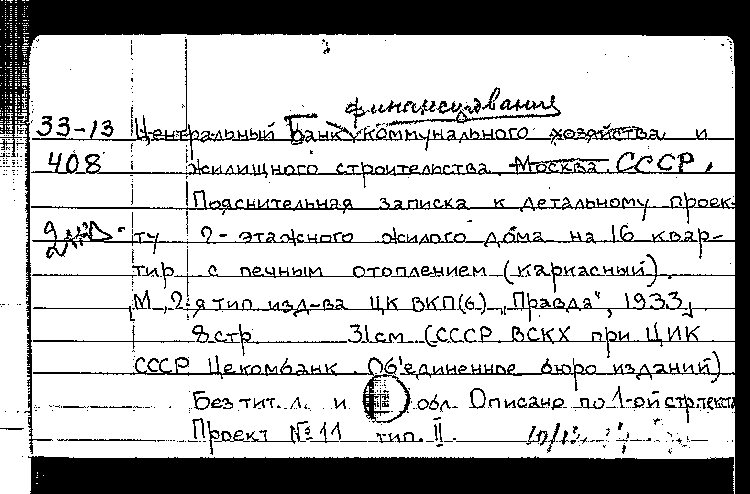 финансирования
33-13 Центральный Банк коммунального хозяйства и
408 жилищного строительства. Москва. СССР.
Пояснительная записка к детальному проек-
ту 2-этажного жилого дома на 16 квар-
тир с печным отоплением (каркасный).
М., 2-я тип. изд-ва ЦК ВКП(б) "Правда", 1933,
8 стр. 31 см (СССР. ВСКХ при ЦИК
СССР Цекомбанк. Об'единенное бюро изданий)
Без тит. л. и обл. Описано по 1-ой стр. текста
Проект № 11 тип. II.